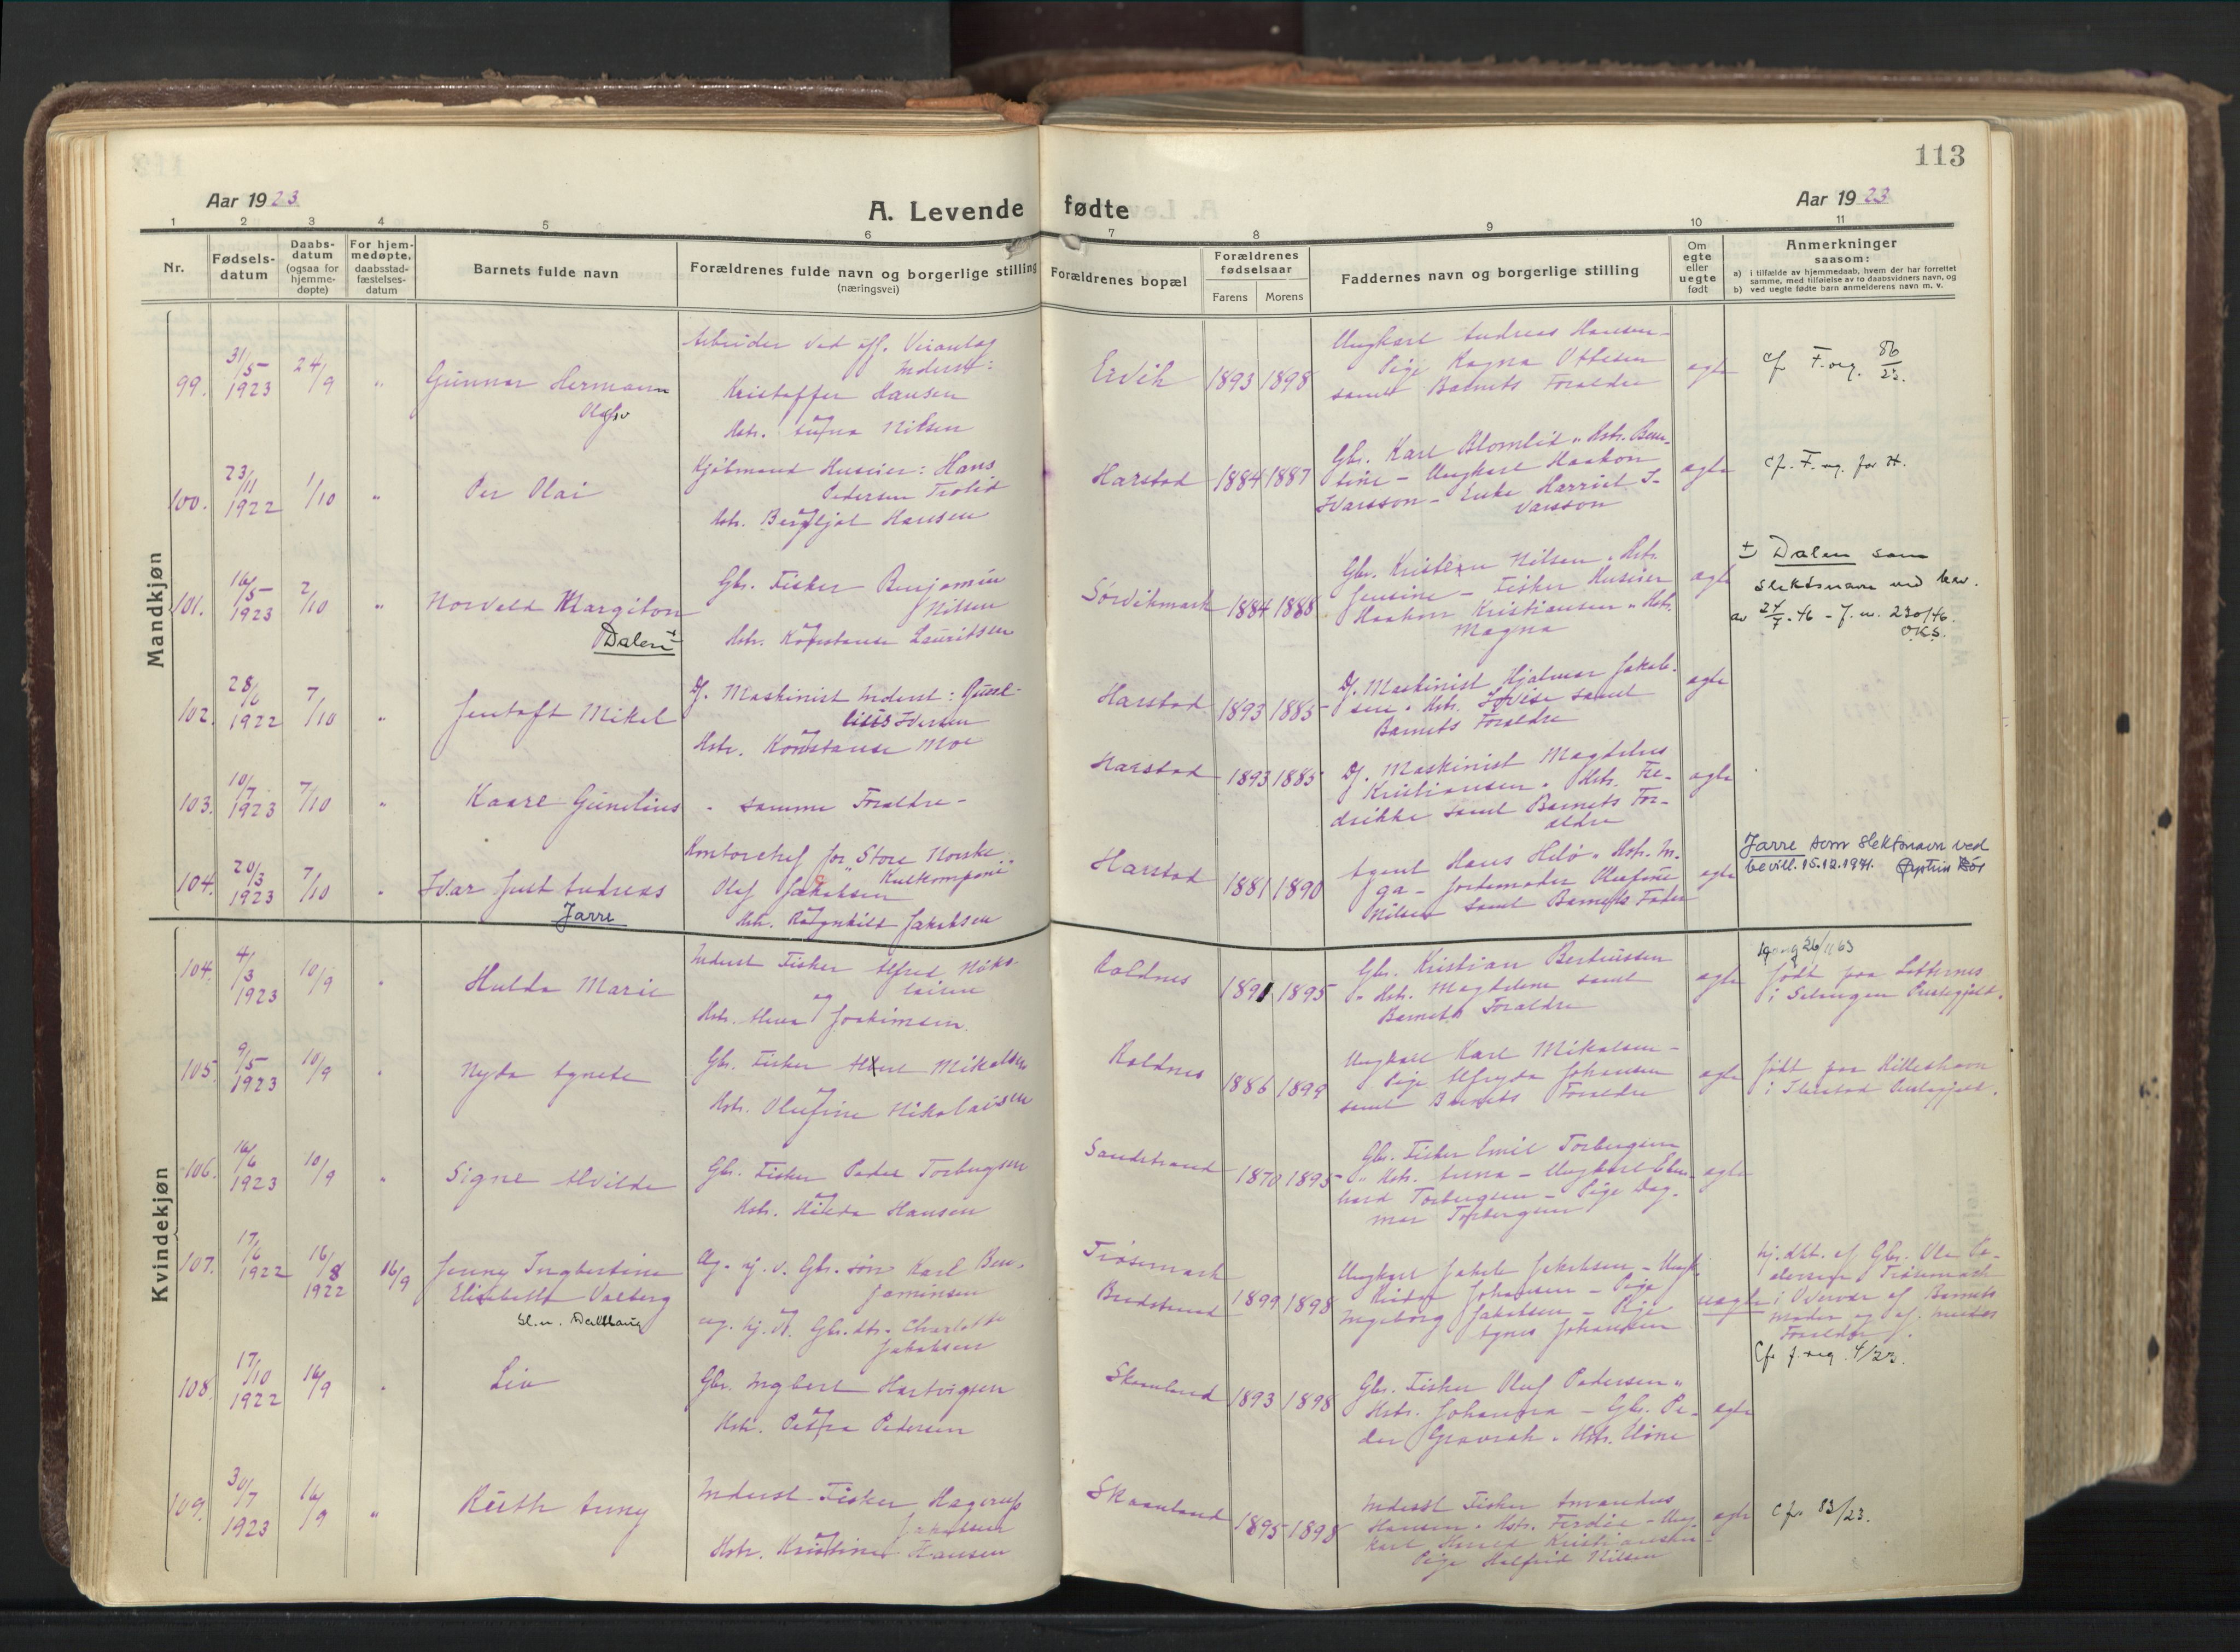 113
Aar 1923
A. Levende fødte
Aar 1923
1 2 3 4 5 6 7 8 9 10 11
Nr.
Fødsels-
datum
Daabs-
datum
(ogsaa for
hjemme-
døpte)
For hjem-
medøpte,
daabsstad-
fæstelses-
datum
Barnets fulde navn
Forældrenes fulde navn og borgerlige stilling
(næringsvei)
Forældrenes bopæl
Forældrenes
fødselsaar
Farens
Morens
Faddernes navn og borgerlige stilling
Om
egte
eller
uegte
født
Anmerkninger
saasom:
a) i tilfælde av hjemmedaab, hvem der har forrettet
samme, med tilføielse av to daabsvidners navn, og
b) ved uegte fødte barn anmelderens navn m. v.
Mandkjøn
99.
31/5
1923
24/9
"
Gunnar Hermann
Arbeider ved off.
Inderst:
Kristoffer Hansen
Hstr. Nilsen
Ervik
1893
1898
Ungkarl Andreas Hansen -
Pige Ragna Ottesen
samt Barnets Forældre
ægte
cf F.reg. 86/23.
100.
23/11
1922
1/10
"
Per Olai
Kjøbmand Huseier: Hans
Pedersen Trolid
Hstr. Bergljot Hansen
Harstad
1884
1887
Gbr. Karl Blomlid " Hstr. Ben-
tine - Ungkarl Haakon
Ivarsson - Enke Harriet I-
varsson
ægte
cf. F. reg. for H.
101.
16/5
1923
2/10
"
Norvald Margiton
Dalen +
Gbr. Fisker Benjamin
Nilsen
Hstr. Konstanse Lauritsen
Sørvikmark
1884
1888
Gbr. Kristian Nilsen " Hstr
Jensine - Fisker Huseier
Haakon Kristiansen " Hstr.
Magna
ægte
+ Dalen som
slektsnavn ved bev.
av 24/7 46 - J. nr. 230/46.
O.K.S.
102.
28/6
1922
7/10
"
Jentoft Mikal
D/. Maskinist Inderst: Gunel-
lius Iversen
Hstr. Konstanse Moe
Harstad
1893
1885
D/. Maskinist Hjalmar Jakob-
sen " Hstr. Lovise samt
Barnets Forældre
ægte
103.
10/7
1923
7/10
"
Kaare Gunelius
- samme Forældre -
Harstad
1893
1885
D/. Maskinist Magdelus
Kristiansen " Hstr. Fre-
drikke samt Barnets For-
ældre
ægte
104.
20/3
1923
7/10
"
Ivar Just Andreas
Jarre
Kontorchef for Store Norske
Kulkompani
Olaf Jakobsen
Hstr. Ragnhild Jakobsen
Harstad
1881
1890
Agent Hans Helø " Hstr. In-
ga - Jordemoder
Nilsen samt Barnets Fader
ægte
Jarre som slektsnavn ved
bevill. 15.12.1941.
Kvindekjøn
104.
4/3
1923
10/9
"
Hulda Marie
Inderst Fisker Alfred Niko-
laisen
Hstr. Anna Joakimsen.
Roldnes
1891
1895
Gbr. Kristian Bertheussen
" Hstr. Magdelene samt
Barnets Forældre
ægte
26/11 63
født paa
i Salangen Prestegjeld.
105.
9/5
1923
10/9
"
Nyda Agnete
Gbr. Fisker Mikalsen
Hstr. Olufine Nikolaisen
Roldnes
1886
1899
Ungkarl Karl Mikalsen -
Pige Alfryda Johansen
samt Barnets Forældre
ægte
født paa
i Ibestad Prestegjeld.
106.
16/6
1923
10/9
"
Signe Alvilde
Gbr. Fisker Peder Torbergsen
Hstr. Hilda Hansen
Sandstrand
1870
1895
Gbr. Fisker Emil Torbergsen
" Hstr. Anna - Ungkarl Eber-
hard Torbergsen - Pige Dag-
mar Torbergsen
ægte
107.
17/6
1922
16/8
1922
16/9
Jenny Ingbertine
Elisabeth Valberg
Sl.n.
Ug. hj. v. Gbr. søn Karl Ben-
jaminsen
ug. hj. v. Gbr. dtr. Charlotte
Jakobsen
Trøsemark
Breistrand
1899
1898
Ungkarl Jakob Jakobsen - Ungk.
Johansen - Pige
Ingeborg Jakobsen - Pige
Agnes Johansen
uægte
hj. dbt. af Gbr. Ole Pe-
dersen Trøsemark
i Overvær af Barnets
moder og af hendes
Forældre.
Cf. f. reg. 4/23.
108.
17/10
1922
16/9
"
Liv
Gbr. Ingbert Hartvigsen
Hstr. Petra Pedersen
Skaanland
1893
1898
Gbr. Fisker Oluf Pedersen "
Hstr. Johanna - Gbr. Pe-
der Gravrok " Hstr. Eline
ægte
109.
30/7
1923
16/9
"
Ruth Anny
Inderst Fisker Hagerup
Jakobsen
Hstr. Kristine Hansen
Skaanland
1895
1898
Inderst Fisker Amandus
Hansen " Hstr. - Ung-
karl Harald Kristiansen
Pige Halfrid Nilsen
ægte
Cfr. 83/23.